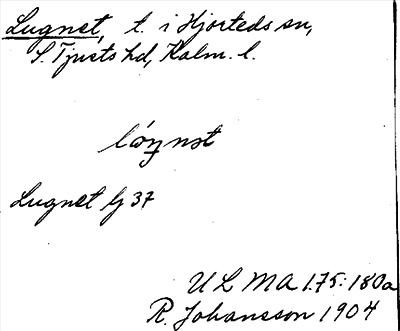 Lugnet, t. i Hjorteds sn,
S. Tjusts hd, Kalm. l.
Lugnet lj 37
U L M A 175:180a
R. Johansson 1904